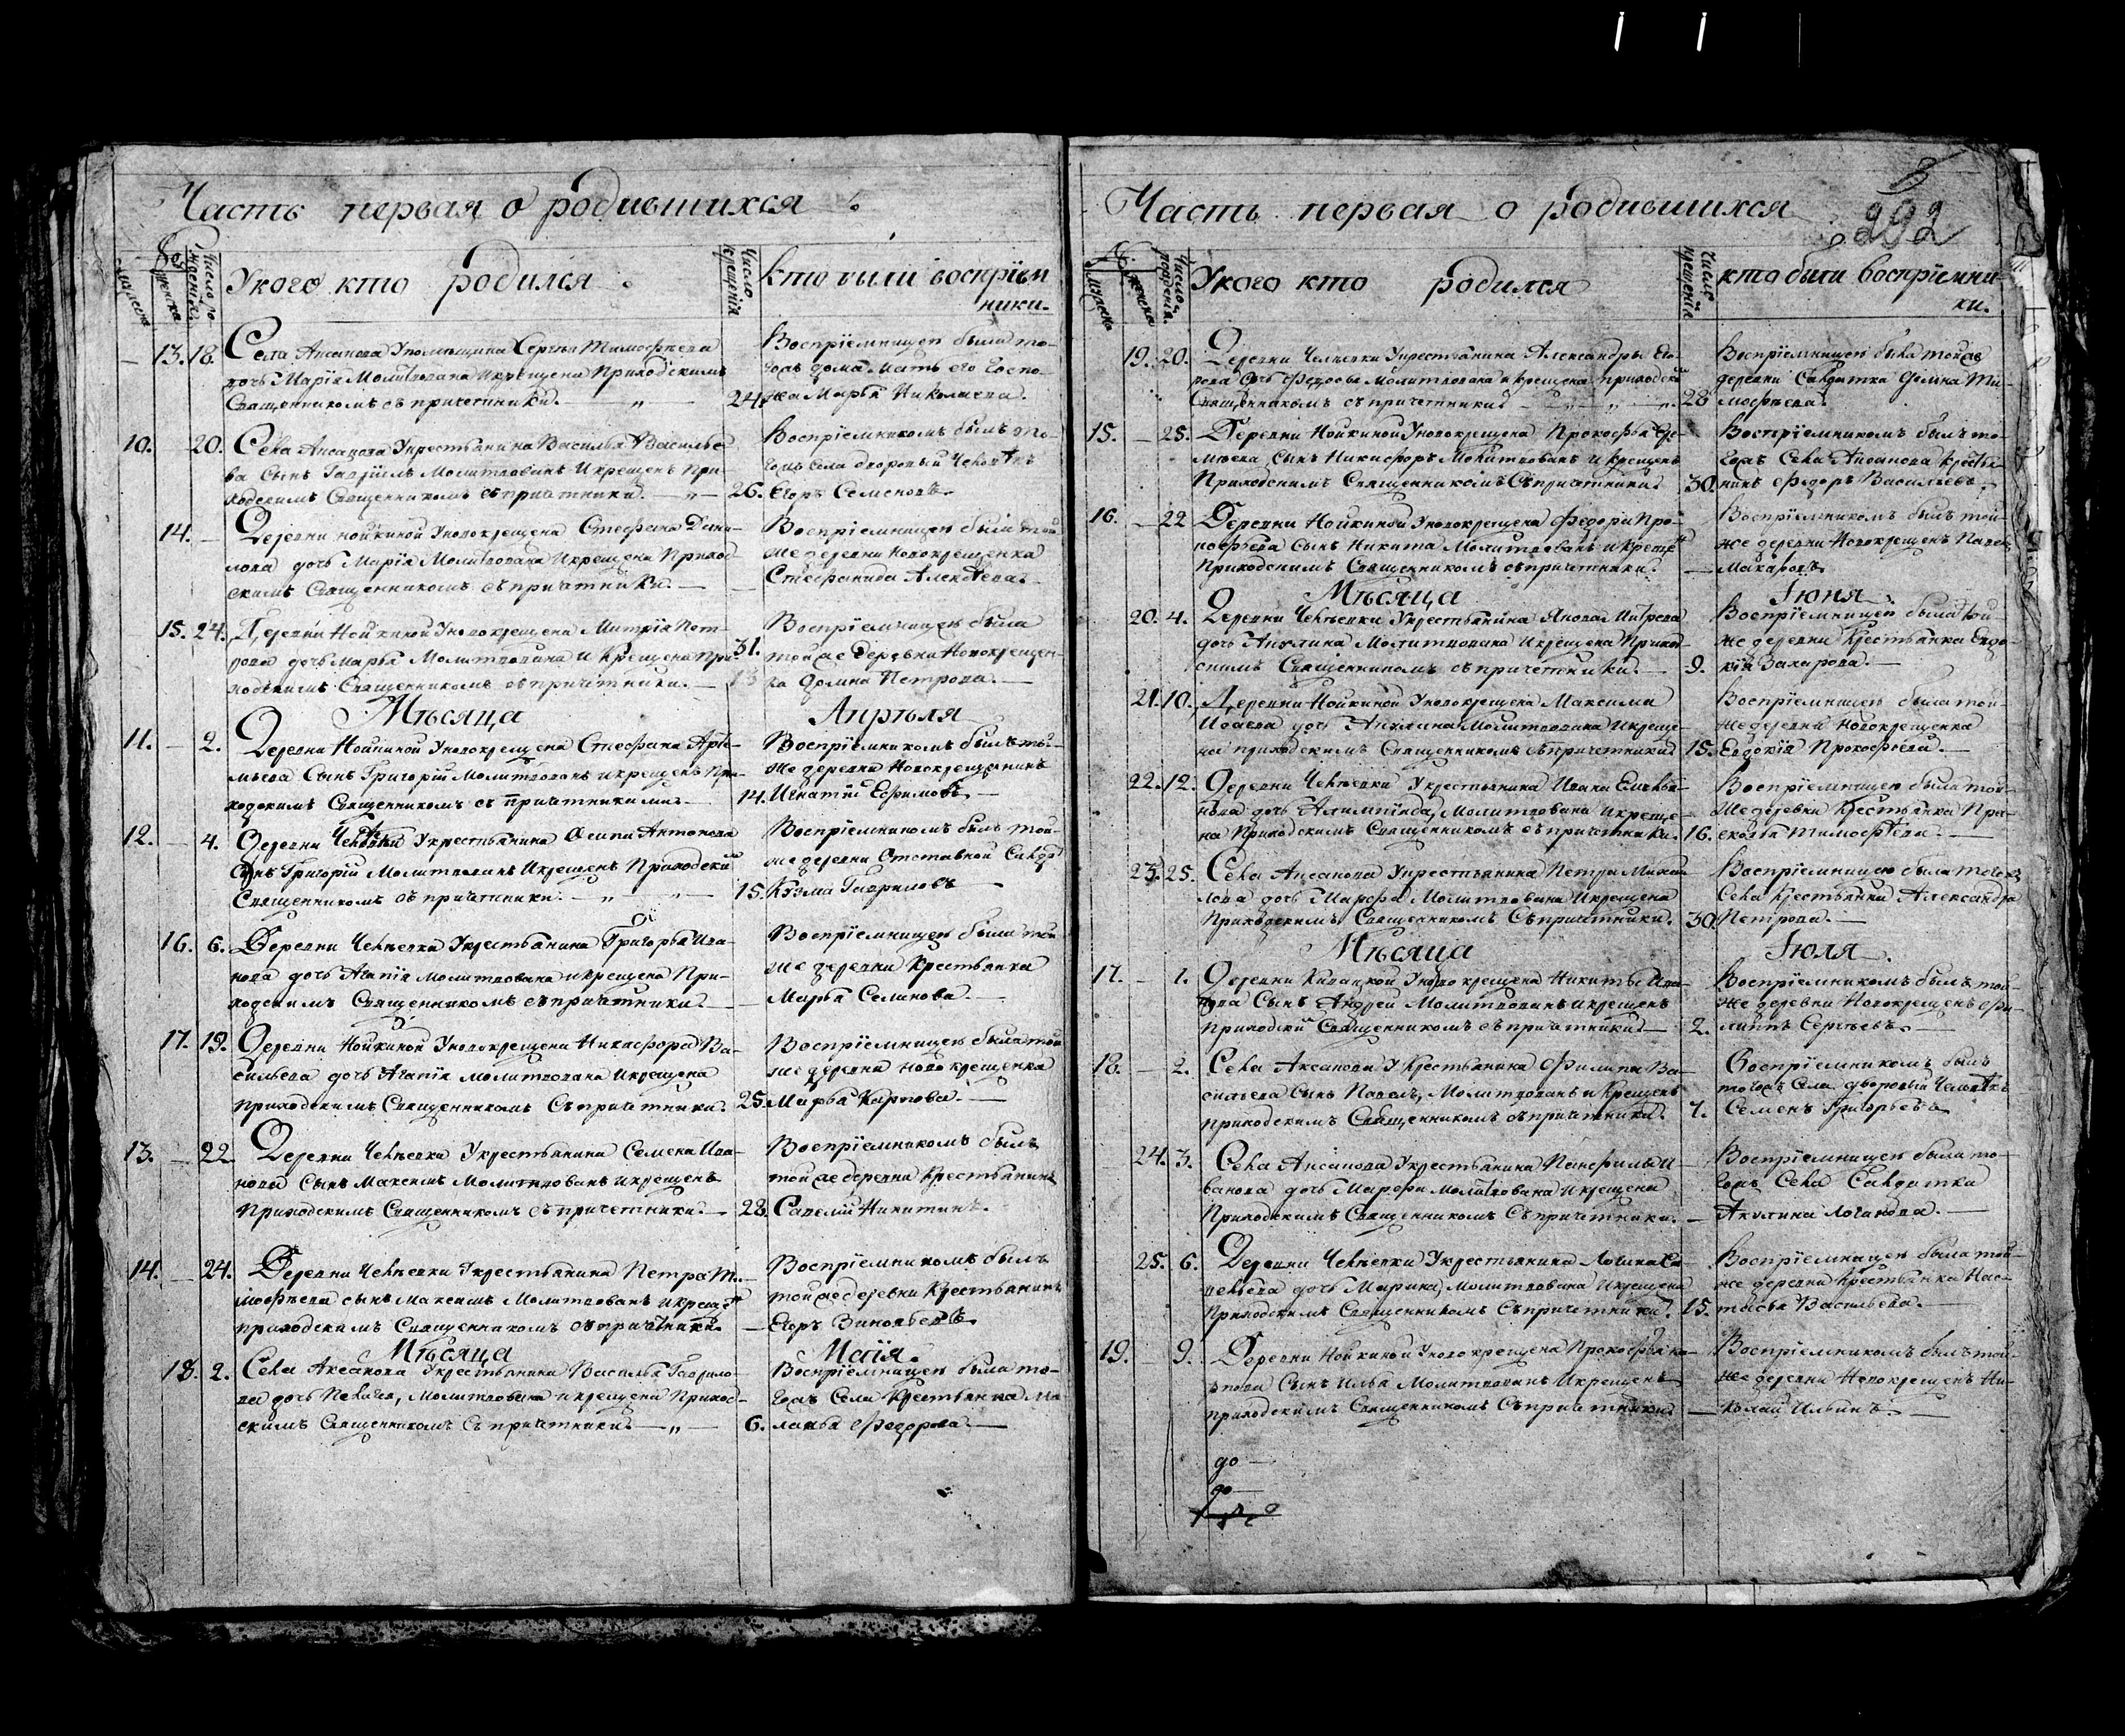 Часть первая о родившихся
№
мужеска
женска
Число рождения
У кого кто родился
Число крещенія
Кто были воспріем
ники.
13. 18. Села Аксанова Упомѣщика Сергѣя Тимофѣева
дочь Марія Молитвована Икрещена Приходскимъ
Священникомъ съ причетники. 24.
Воспріемницею была то-
гожъ дома Мать его Госпо-
жа Марья Николаева.
10. 20. Села Аксанова Укрестьянина Василья Василье-
ва Сынъ Гавріилъ Молитвованъ Икрещенъ При-
ходскимъ Священникомъ съ причетники. 26.
Воспріемникомъ былъ то-
гожъ села дворовый Человѣкъ
Егоръ Семеновъ.
14. Деревни Нойкиной Уновокрещена Стефана Дани-
лова дочь Марія Молитвована Икрещена Приход-
скимъ Священникомъ съ причетники.
Воспріемницею была той
же деревни Новокрещенка
Стефанида Алексѣева.
15. 24. Деревни Нойкиной Уновокрещена Митрія Пет-
рова дочь Марья Молитвована И Крещена При-
ходскимъ Священникомъ съ причетники. 31.
Воспріемницею была
тойже Деревни Новокрещен-
ка Домна Петрова.
Мѣсяца Апрѣля
11. 2. Деревни Нойкиной Уновокрещена Стефана Арте-
мьева Сынъ Григорій Молитвованъ икрещенъ При-
ходскимъ Священникомъ съ причетниками 14.
Воспріемникомъ былъ той-
же деревни Новокрещенинъ
Игнатій Ефимовъ.
12. 4. Деревни Челѣевки Укрестьянина Осипа Антонова
Сынъ Григорій Молитвованъ Икрещенъ Приходским
Священникомъ съ причетники. 15.
Воспріемникомъ былъ той-
же деревни Отставной Салдат
Козма Гавриловъ
16. 6. Деревни Челѣевки Укрестьянина Григорья Ива-
нова дочь Агапія молитвована икрещена При-
ходскимъ Священникомъ съ причетники.
Воспріемницею была той-
же деревни Крестьянка
Марья Селинова.
17. 19. Деревни Нойкиной Уновокрещена Никифора Ва-
сильева дочь Агапія молитвована Икрещена
Приходскимъ Священникомъ Съ причетники. 25.
Воспріемницею была той
же деревни новокрещенка
Марья Карпова.
13. 22 Деревни Челѣевки Укрестьянина Семена Ива-
нова Сынъ Максимъ Молитвованъ икрещенъ
Приходскимъ Священникомъ съ причетники. 28.
Воспріемникомъ былъ
тойже деревни Крестьянинъ
Савелій Никитинъ.
14. 24. Деревни Челѣевки Укрестьянина Петра Ти-
мофѣева сынъ Максимъ Молитвованъ икрещен
приходскимъ Священникомъ съ причетники.
Воспріемникомъ былъ
тойже деревни Крестьянинъ
Егоръ Зиновьевъ.
Мѣсяца Маія.
18. 2. Села Аксанова Укрестьянина Василья Гаврило-
ва дочь Пелагея, Молитвована икрещена Приход-
скимъ Священникомъ Съ причетники. 6.
Воспріемницею была то-
гожъ Села Крестьянка Ма-
ланья Федорова.
Часть первая о родившихся
292
№
мужеска
женска
Число рожденія
У кого кто родился
Число крещенія
кто были воспріемни-
ки.
19. 20. Деревни Челѣевки Укрестьянина Александры Его-
рова дочь Федосья Молитвована икрещена приходским
Священникомъ съ причетники. 28
Воспріемницею была тойже
деревни Салдатка Домна Ти-
мофѣева.
15. 25. Деревни Нойкиной Уновокрещена Прокофья Ере-
мѣева Сынъ Никифоръ Молитвованъ и крещенъ
Приходскимъ Священникомъ Съ причетники. 30.
Воспріемникомъ былъ то-
гожъ Села Аксанова Крестья-
нинъ Федоръ Васильевъ.
16. 22 Деревни Нойкиной Уновокрещена Федора Про-
кофьева Сынъ Никита Молитвованъ икрещен
Приходскимъ Священникомъ съ причетники.
Воспріемникомъ былъ той-
же деревни Новокрещенъ Павел
Макаровъ
Мѣсяца Іюня.
20. 4. Деревни Челѣевки Укрестьянина Якова Митрева
дочь Акулина Молитвована Икрещена Приход-
скимъ Священникомъ съ причетники. 9.
Воспріемницею была той
же деревни Крестьянка Евдо-
кія Захарова.
21. 10. Деревни Нойкиной Уновокрещена Максима
Исаева дочь Акулина Молитвована Икреще-
на приходскимъ Священникомъ съ причетники 15.
Воспріемницею была той-
же деревни Новокрещенка
Евдокія Прокофьева.
22. 12. Деревни Челѣевки Укрестьянина Ивана Емелья-
нова дочь Алимпіяда, Молитвована икреще-
на Приходскимъ Священникомъ съ причетники. 16.
Воспріемницею была той-
же деревни Крестьянка Пра-
сковья Тимофѣева.
23. 25. Села Аксанова Укрестьянина Петра Михай-
лова дочь Марфа Молитвована Икрещена
Приходскимъ Священникомъ Съ причетники. 30.
Воспріемницею была тогожъ
Села Крестьянка Александра
Петрова.
Мѣсяца Іюля.
17. 1. Деревни Уновокрещена Никиты Ива-
нова Сынъ Андрей Молитвованъ икрещенъ
приходски Священникомъ съ причетники. 2.
Воспріемникомъ былъ той-
же деревни Новокрещенъ Фи-
липпъ Сергѣевъ.
18. 2. Села Аксанова У Крестьянина Филипа Ва-
сильева Сынъ Павелъ, Молитвованъ и Крещенъ
приходскимъ Священникомъ съ причетники. 7.
Воспріемникомъ былъ
тогожъ Села дворовый Человѣкъ
Семенъ Григорьевъ
24. 3. Села Аксанова Укрестьянина Панфила И-
ванова дочь Марфа молитвована Икрещена
Приходскимъ Священникомъ Съ причетники.
Воспріемницею была то-
гожъ Села Салдатка
Акулина Логинова.
25. 6. Деревни Челѣевки Укрестьянина Логина Са-
вельева дочь Марина, Молитвована Икрещена
Приходскимъ Священникомъ Съ причетники. 15.
Воспріемницею была той-
же деревни Крестьянка Нас-
тасья Васильева.
19. 9. Деревни Нойкиной Уновокрещена Прокофья
Сынъ Илья Молитвованъ Икрещенъ
приходскимъ Священникомъ Съ причетники
Воспріемникомъ былъ той-
же деревни Новокрещенъ Ни-
колай Ильинъ.
до
до